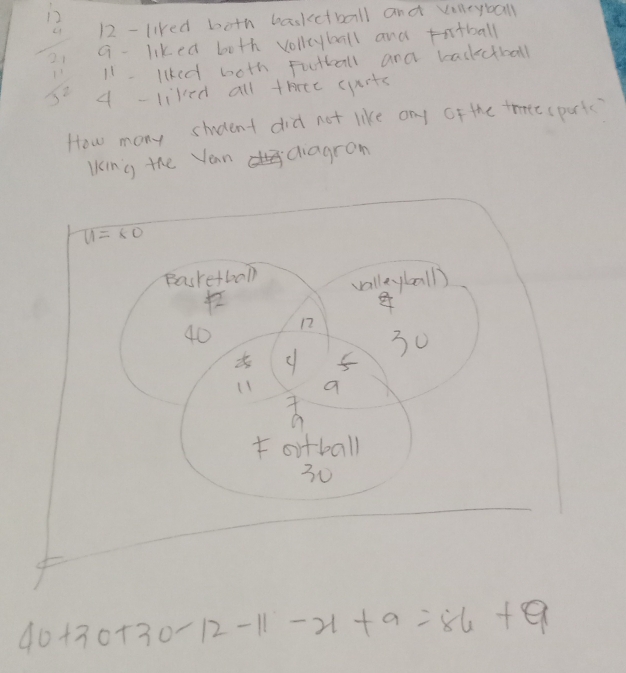 12
9
21
11
32
12 - liked both basketball and volleyball
9 - liked both volleyball and football
11 - liked both football and basketball
4 - liked all three sports
How many student did not like any of the three sports?
the Venn diagram
Basketball
Valleyball
12
40
30
4
11
9
Football
30
40+30+30-12-11